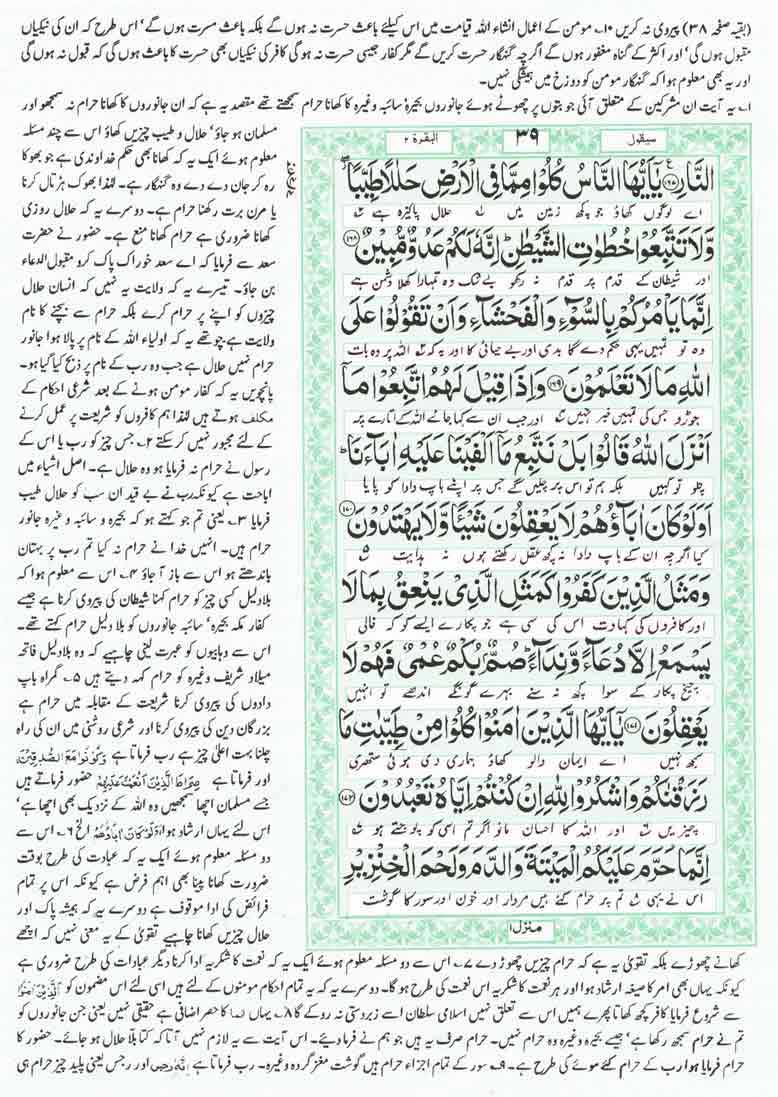 (بقیہ صفحہ ۳۸) پیروی نہ کریں ۱۰؎ مومن کے اعمال انشاء اللہ قیامت میں اس کیلئے باعث حسرت نہ ہوں گے بلکہ باعث مسرت ہوں گے' اس طرح کہ ان کی نیکیاں
مقبول ہوں گی' اور اکثر کے گناہ مغفور ہوں گے اگرچہ گنہگار حسرت کریں گے مگر کفار جیسی حسرت نہ ہوگی کافر کی نیکیاں بھی حسرت کا باعث ہوں گی کہ قبول نہ ہوں گی
اور یہ بھی معلوم ہوا کہ گنہگار مومن کو دوزخ میں ہمیشگی نہیں۔
۱؎ یہ آیت ان مشرکین کے متعلق آئی جو بتوں پر چھوٹے ہوئے جانوروں بحیرہ' سائبہ وغیرہ کا کھانا حرام سمجھتے تھے مقصد یہ ہے کہ ان جانوروں کا کھانا حرام نہ سمجھو اور
سیقول
۳۹
البقرۃ ۲
النَّارِ ﴿۱۶۷﴾ یٰۤاَیُّهَا النَّاسُ كُلُوْا مِمَّا فِی الْاَرْضِ حَلٰلًا طَیِّبًا
اے لوگوں کھاؤ جو کچھ زمین میں ہے حلال پاکیزہ ہے
وَّلَا تَتَّبِعُوْا خُطُوٰتِ الشَّیْطٰنِ اِنَّهٗ لَكُمْ عَدُوٌّ مُّبِیْنٌ ﴿۱۶۸﴾
اور شیطان کے قدم پر قدم نہ رکھو بے شک وہ تمہارا کھلا دشمن ہے
اِنَّمَا یَاْمُرُكُمْ بِالسُّوْٓءِ وَالْفَحْشَآءِ وَاَنْ تَقُوْلُوْا عَلَی
وہ تو تمہیں یہی حکم دے گا بدی اور بے حیائی کا اور یہ کہ اللہ پر وہ بات
اللّٰهِ مَا لَا تَعْلَمُوْنَ ﴿۱۶۹﴾ وَاِذَا قِیْلَ لَهُمُ اتَّبِعُوْا مَاۤ
جوڑو جس کی تمہیں خبر نہیں اور جب ان سے کہا جائے اللہ کے اتارے پر
اَنْزَلَ اللّٰهُ قَالُوْا بَلْ نَتَّبِعُ مَاۤ اَلْفَیْنَا عَلَیْهِ اٰبَآءَنَا
چلو تو کہیں بلکہ ہم تو اس پر چلیں گے جس پر اپنے باپ دادا کو پایا
اَوَلَوْ كَانَ اٰبَآؤُهُمْ لَا یَعْقِلُوْنَ شَیْـًٔا وَّلَا یَهْتَدُوْنَ ﴿۱۷۰﴾
کیا اگرچہ ان کے باپ دادا نہ کچھ عقل رکھتے ہوں نہ ہدایت
وَمَثَلُ الَّذِیْنَ كَفَرُوْا كَمَثَلِ الَّذِیْ یَنْعِقُ بِمَا لَا
اور کافروں کی کہاوت اس کی سی ہے جو پکارے ایسے کو کہ خالی
یَسْمَعُ اِلَّا دُعَآءً وَّنِدَآءً صُمٌّۢ بُكْمٌ عُمْیٌ فَهُمْ لَا
چیخ پکار کے سوا کچھ نہ سنے بہرے گونگے اندھے تو انہیں
یَعْقِلُوْنَ ﴿۱۷۱﴾ یٰۤاَیُّهَا الَّذِیْنَ اٰمَنُوْا كُلُوْا مِنْ طَیِّبٰتِ مَا
سمجھ نہیں اے ایمان والو کھاؤ ہماری دی ہوئی ستھری
رَزَقْنٰكُمْ وَاشْكُرُوْا لِلّٰهِ اِنْ كُنْتُمْ اِیَّاهُ تَعْبُدُوْنَ ﴿۱۷۲﴾
چیزیں اور اللہ کا احسان مانو اگر تم اسی کو پوجتے ہو
اِنَّمَا حَرَّمَ عَلَیْكُمُ الْمَیْتَةَ وَالدَّمَ وَلَحْمَ الْخِنْزِیْرِ
اس نے یہی تم پر حرام کئے ہیں مردار اور خون اور سور کا گوشت
منزل ۱
مسلمان ہو جاؤ' حلال و طیب چیزیں کھاؤ اس سے چند مسئلہ
معلوم ہوئے ایک یہ کہ کھانا بھی حکم خداوندی ہے جو بھوکا
رہ کر جان دے دے وہ گنہگار ہے۔ لہٰذا بھوک ہڑتال کرنا
یا مرن برت رکھنا حرام ہے۔ دوسرے یہ کہ حلال روزی
کھانا ضروری ہے حرام کھانا منع ہے۔ حضور نے حضرت
سعد سے فرمایا کہ اے سعد خوراک پاک کرو مقبول الدعاء
بن جاؤ۔ تیسرے یہ کہ ولایت یہ نہیں کہ انسان حلال
چیزوں کو اپنے پر حرام کرے بلکہ حرام سے بچنے کا نام
ولایت ہے چوتھے یہ کہ اولیاء اللہ کے نام پر پالا ہوا جانور
حرام نہیں حلال ہے جب وہ رب کے نام پر ذبح کیا گیا ہو۔
پانچویں یہ کہ کفار مومن ہونے کے بعد شرعی احکام کے
مکلف ہوتے ہیں لہٰذا ہم کافروں کو شریعت پر عمل کرنے
کے لئے مجبور نہیں کر سکتے ۲؎ جس چیز کو رب یا اس کے
رسول نے حرام نہ فرمایا ہو وہ حلال ہے۔ اصل اشیاء میں
اباحت ہے کیونکہ رب نے بے قید ان سب کو حلال طیب
فرمایا ۳؎ یعنی تم جو کہتے ہو کہ بحیرہ و سائبہ وغیرہ جانور
حرام ہیں۔ انہیں خدا نے حرام نہ کیا تم رب پر بہتان
باندھتے ہو اس سے باز آ جاؤ ۴؎ اس سے معلوم ہوا کہ
بلا دلیل کسی چیز کو حرام کہنا شیطان کی پیروی کرنا ہے جیسے
کفار مکہ بحیرہ' سائبہ جانوروں کو بلا دلیل حرام کہتے تھے۔
اس سے وہابیوں کو عبرت لینی چاہیے کہ وہ بلا دلیل فاتحہ
میلاد شریف وغیرہ کو حرام کہہ دیتے ہیں ۵؎ گمراہ باپ
دادوں کی پیروی کرنا شریعت کے مقابلہ میں حرام ہے
بزرگان دین کی پیروی کرنا اور شرعی روشنی میں ان کی راہ
چلنا بہت اعلیٰ چیز ہے رب فرماتا ہے وَكُوْنُوْا مَعَ الصّٰدِقِیْنَ
اور فرماتا ہے صِرَاطَ الَّذِیْنَ اَنْعَمْتَ عَلَیْهِمْ حضور فرماتے ہیں
جسے مسلمان اچھا سمجھیں وہ اللہ کے نزدیک بھی اچھا ہے'
اس لئے یہاں ارشاد ہوا اَوَلَوْ كَانَ اٰبَاؤُهُمْ الخ ۶؎ اس سے
دو مسئلہ معلوم ہوئے ایک یہ کہ عبادت کی طرح بوقت
ضرورت کھانا پینا بھی اہم فرض ہے کیونکہ اس پر تمام
فرائض کی ادا موقوف ہے دوسرے یہ کہ ہمیشہ پاک اور
حلال چیزیں کھانا چاہیے تقویٰ کے یہ معنی نہیں کہ اچھے
کھانے چھوڑے بلکہ تقویٰ یہ ہے کہ حرام چیزیں چھوڑ دے ۷؎ اس سے دو مسئلہ معلوم ہوئے ایک یہ کہ نعمت کا شکریہ ادا کرنا دیگر عبادات کی طرح ضروری ہے
کیونکہ یہاں بھی امر کا صیغہ ارشاد ہوا اور ہر نعمت کا شکریہ اس نعمت کی طرح ہو گا۔ دوسرے یہ کہ یہ تمام احکام مومنوں کے لئے ہیں اسی لئے اس مضمون کو الَّذِیْنَ اٰمَنُوْا
سے شروع فرمایا کافر کچھ کھاتا پھرے ہمیں اس سے تعلق نہیں اسلامی سلطان اسے زبردستی نہ روکے گا ۸؎ یہاں انما کا حصر اضافی ہے حقیقی نہیں یعنی جن جانوروں کو
تم نے حرام سمجھ رکھا ہے' جیسے بحیرہ وغیرہ وہ حرام نہیں۔ حرام صرف یہ ہیں جو ہم نے فرما دیئے۔ اس آیت سے یہ لازم نہیں آتا کہ کتا بلا حلال ہو جائے۔ حضور کا
حرام فرمایا ہوا رب کے حرام کئے ہوئے کی طرح ہے۔ ۹؎ سور کے تمام اجزاء حرام ہیں گوشت مغز گردہ وغیرہ۔ رب فرماتا ہے اِنَّهٗ رِجْسٌ اور رجس یعنی پلید چیز حرام ہی